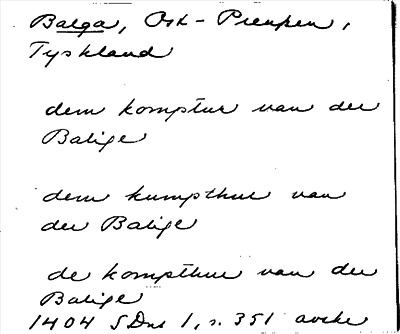 Balga, Ost-Preussen,
Tyskland
dem komptur van der
Balige
dem kumpthur van
der Balige
de kompthur van der
Balige
1404 SDns 1, s. 351 avskr